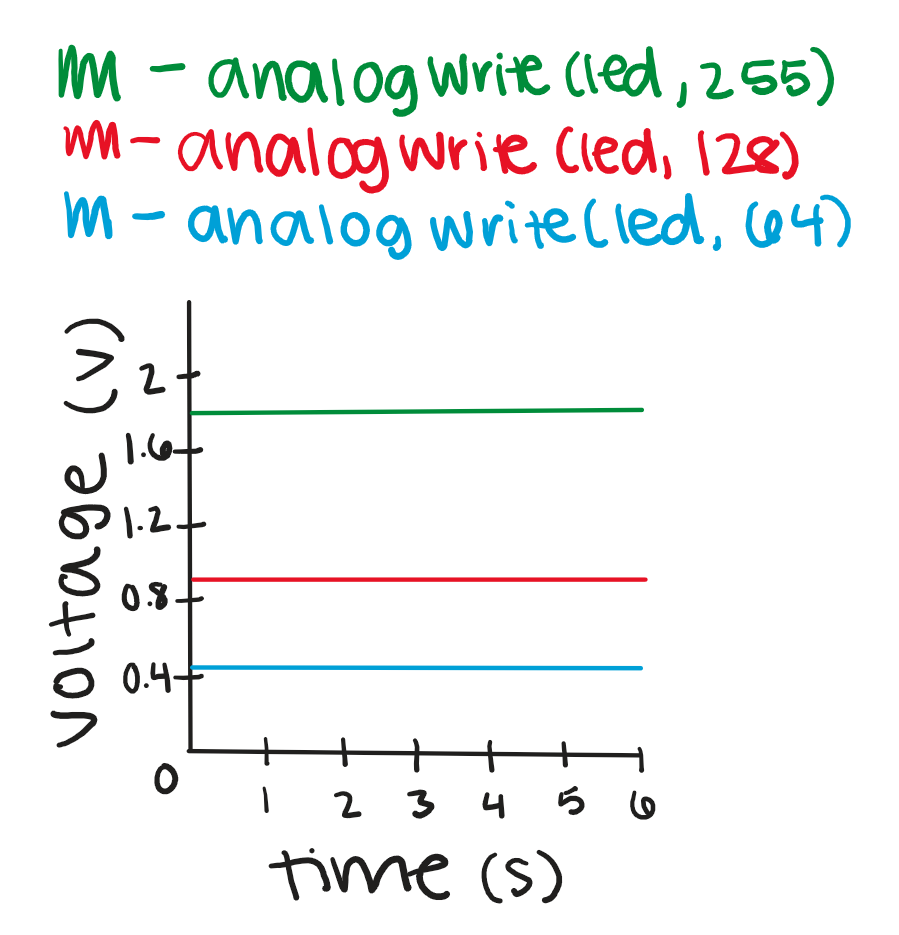 m - analogwrite(led, 255)
m - analogwrite(led, 128)
m - analogwrite(led, 64)
voltage (v)
2
1.6
1.2
0.8
0.4
0
1 2 3 4 5 6
time (s)